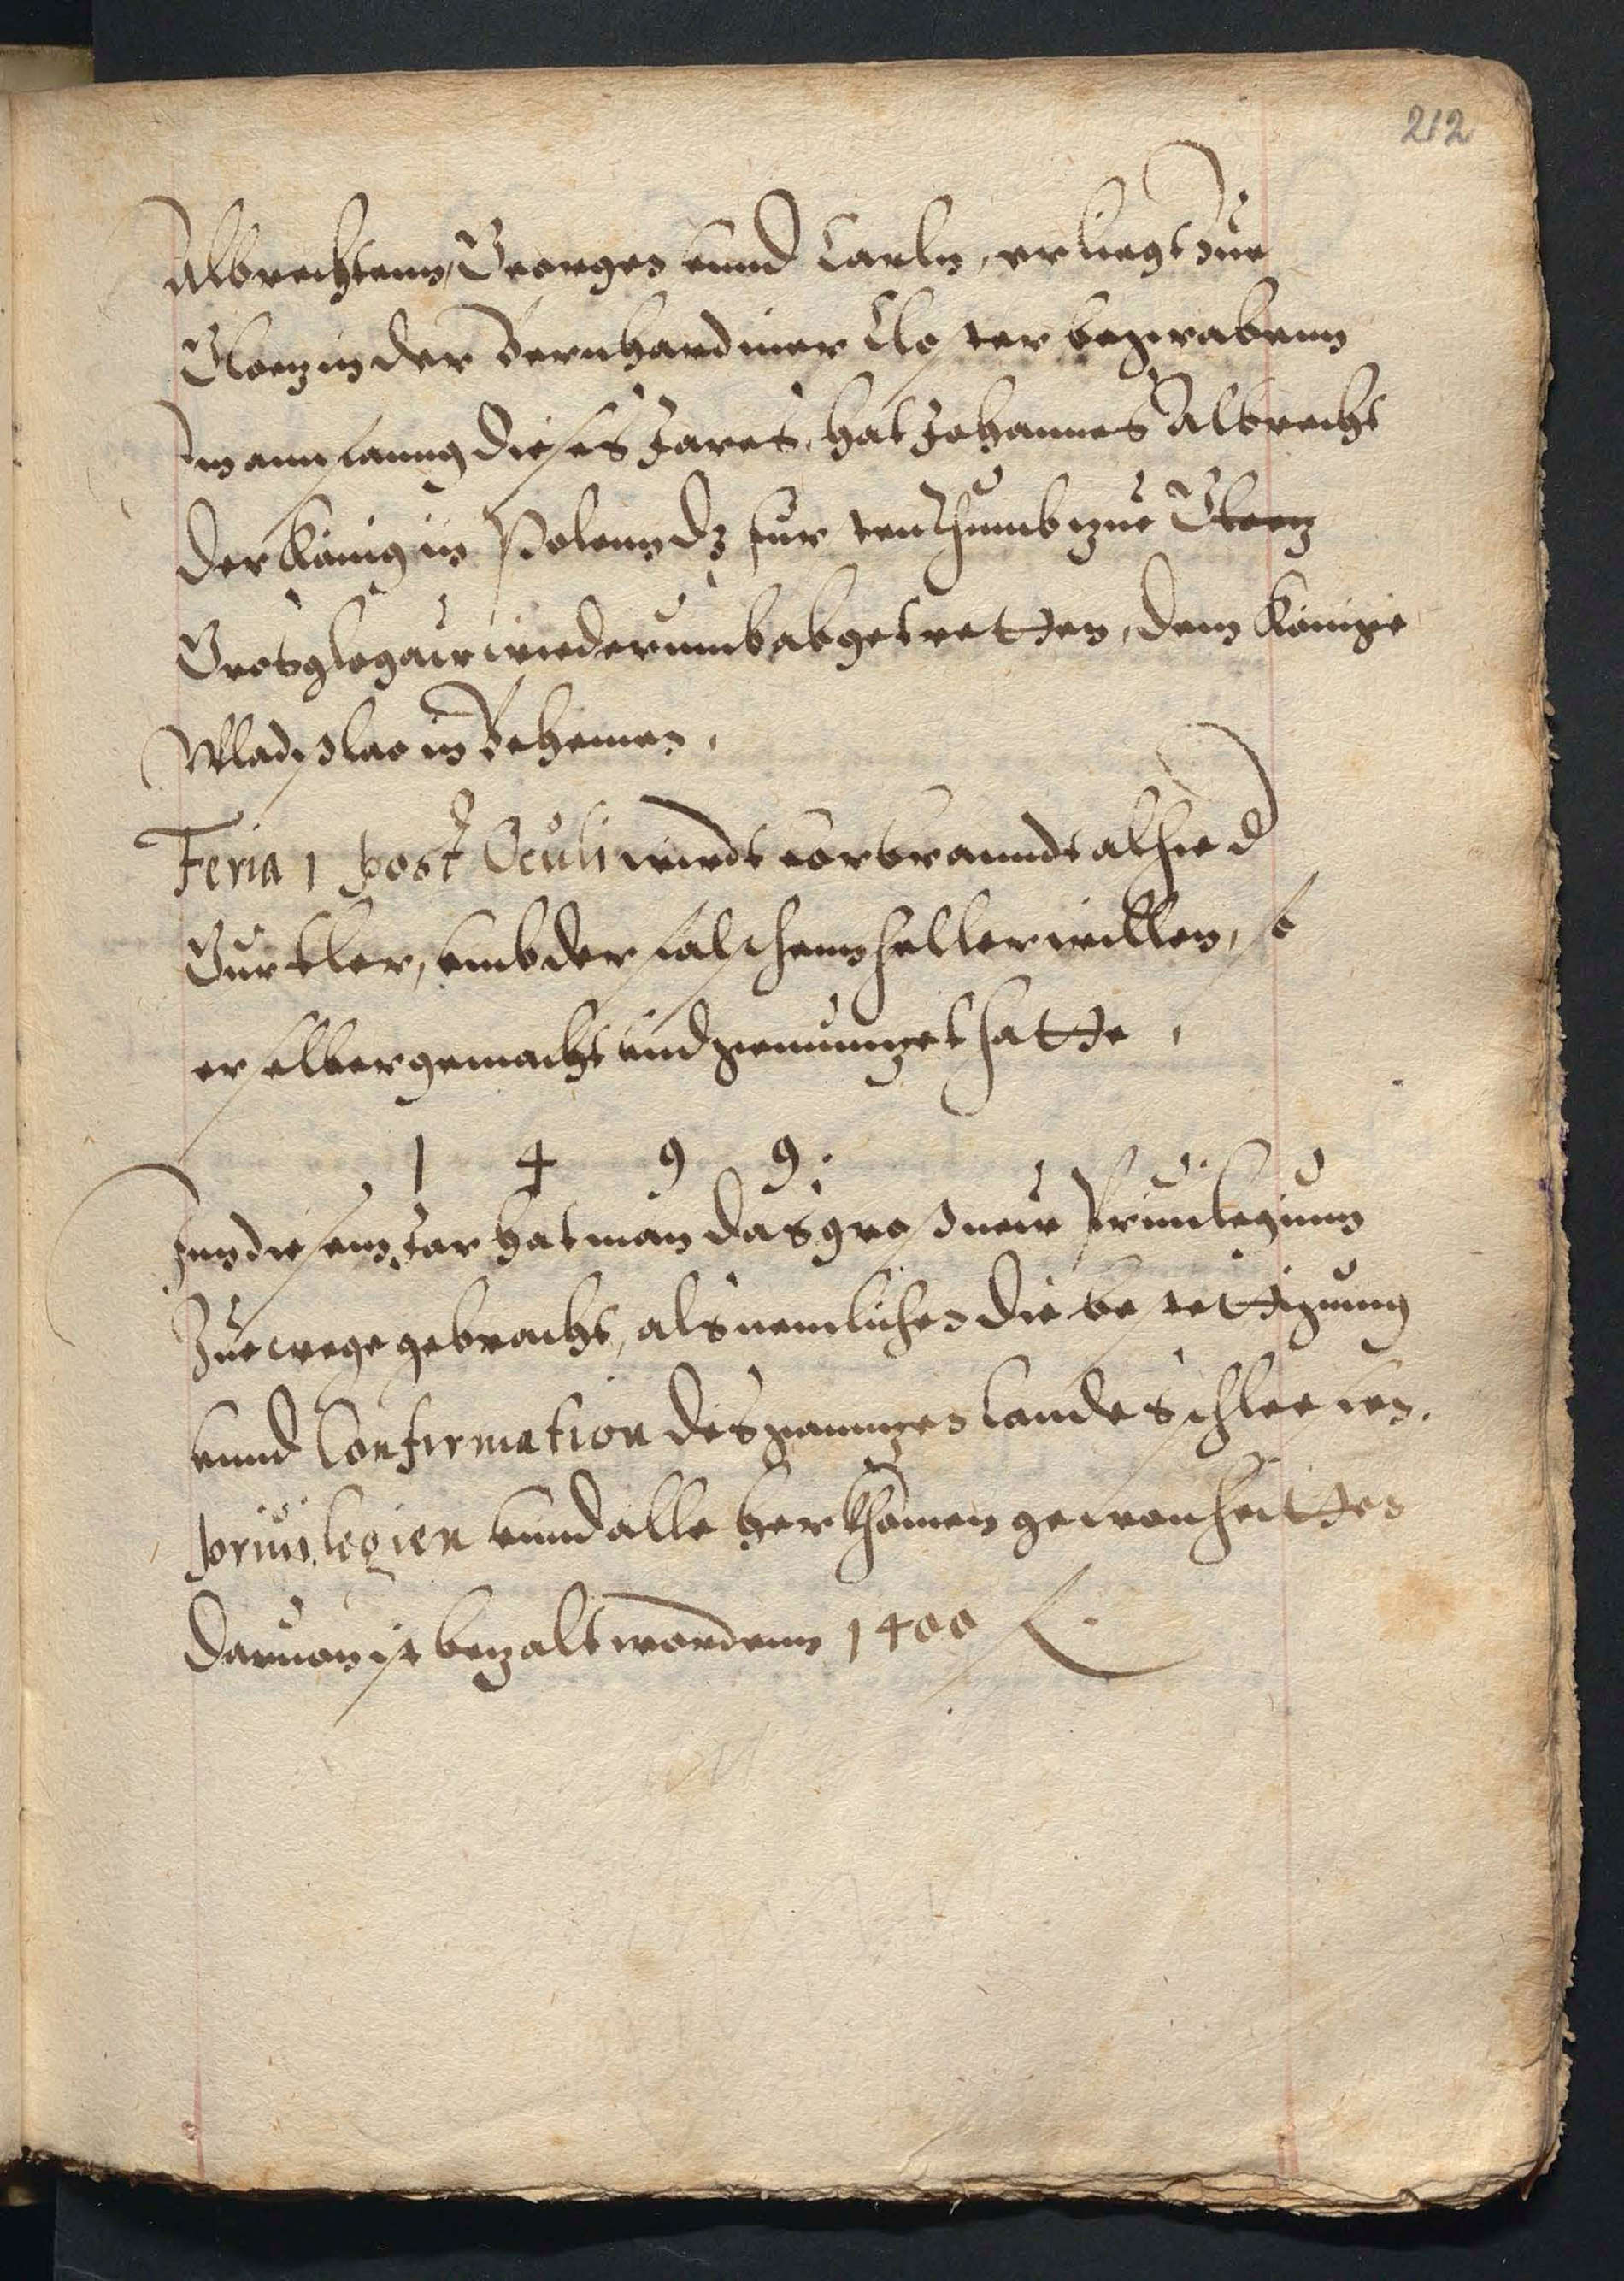 212
Albrechtenn, Georgen vnnd Carln, er liegt zue
Glotz in der Bernhardiner Closter begrabenn
Im annfanng dieses Jares, hat Johannes Albrecht
der König in Polenn dz furstenthumb zue Glotz
Grosglogaw wiederumb abgetretten, dem Könige
Wladislao in Behemen.
Feria 1 post Oculi wirdt vorbranndt alhie d
Gurtler, vmb der falschenn heller willen, so
er selber gemacht vnd gemuntzet hatte.
1 4 9 9.
Inn diesem Jar hat man das gros new Priuilegium
Zue wege gebracht, als nemlichen die bestettigung
vnnd Confirmation des gantzen landes Schlesien.
priuilegien vnnd alle herkhomen gewonheitten
daruon ist bezalt wordenn 1400 f.